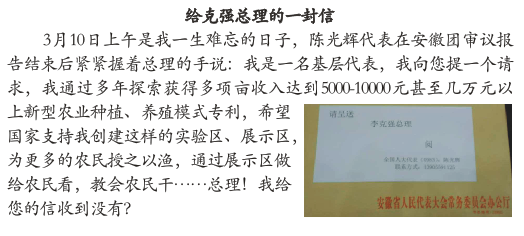 给克强总理的一封信
3月10日上午是我一生难忘的日子，陈光辉代表在安徽团审议报
告结束后紧紧握着总理的手说：我是一名基层代表，我向您提一个请
求，我通过多年探索获得多项亩收入达到5000-10000元甚至几万元以
上新型农业种植、养殖模式专利，希望
国家支持我创建这样的实验区、展示区，
为更多的农民授之以渔，通过展示区做
给农民看，教会农民干……总理！我给
您的信收到没有？
请呈送
李克强总理
安徽省人民代表大会常务委员会办公厅